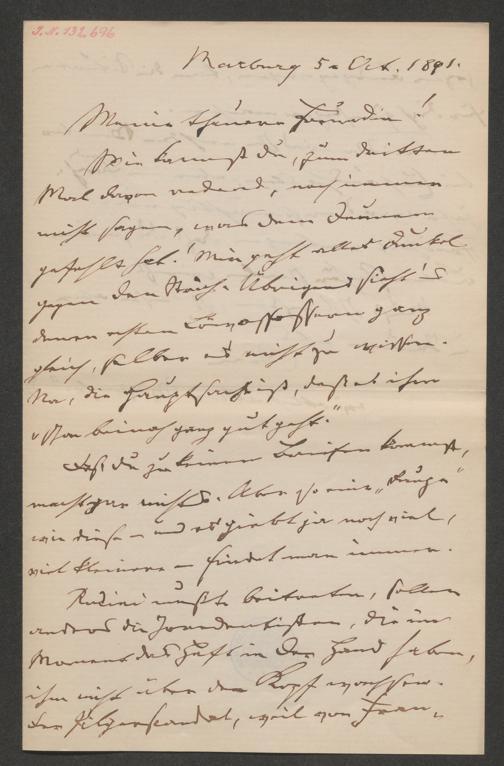 I.N. 132.696
Marburg 5. Oct. 1891.
Meine theuere Freundin!
Wie kannst du, zum dritten
Mal davon redend, noch immer
nicht sagen, was dem Daumen
gefehlt hat! Mir geht alles Dunkel
gegen den Strich. Übrigens sieht's
deinem ersten ganz
gleich, selber es nicht zu wissen.
Na, die Hauptsache ist, daß es ihm
"schon beinah ganz gut geht."
Daß du zu keinem Briefe kommst,
macht gar nichts. Aber so eine "Fuge"
wie diese – und es giebt ja noch viel,
viel kleinere – findet man immer.
Rudini mußte beitreten, sollen
anders die Irredentisten, die im
Moment das Heft in der Hand haben,
ihm nicht über den Kopf wachsen.
Der Pilgerscandal, weil von Fran-